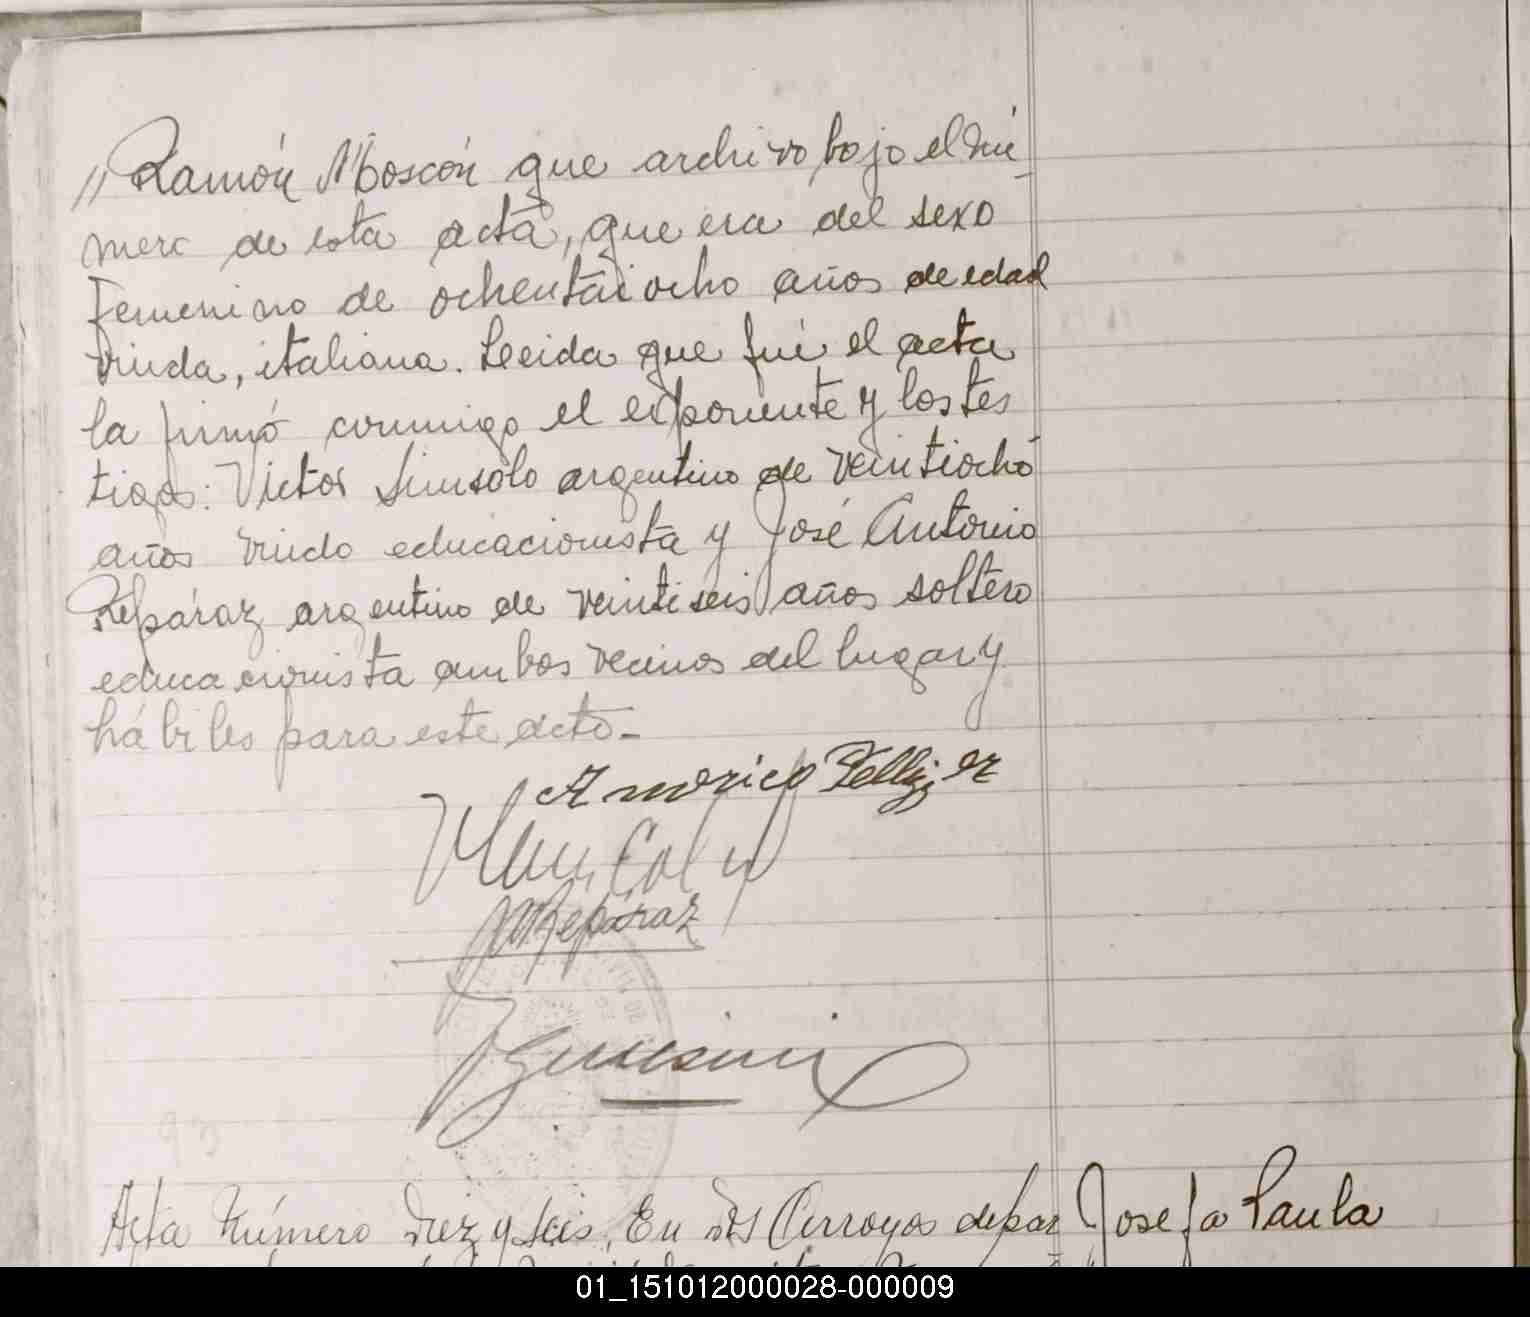 // Ramón Moscón que archivo bajo el nú-
mero de esta acta, que era del sexo
femenino de ochentaiocho años de edad
viuda, italiana. Leeida que fué el acta
la firmó conmigo el exponente y los tes
tigos: Victor Simsolo argentino de veintiocho
años viudo educacionista y José Antonio
Repáraz argentino de veintiseis años soltero
educacionista ambos vecinos del lugar y
hábiles para este acto.-
Americo Pellizer
Repáraz
Acta Número Diez y seis. En Dos Arroyos depar Josefa Paula
01_151012000028-000009